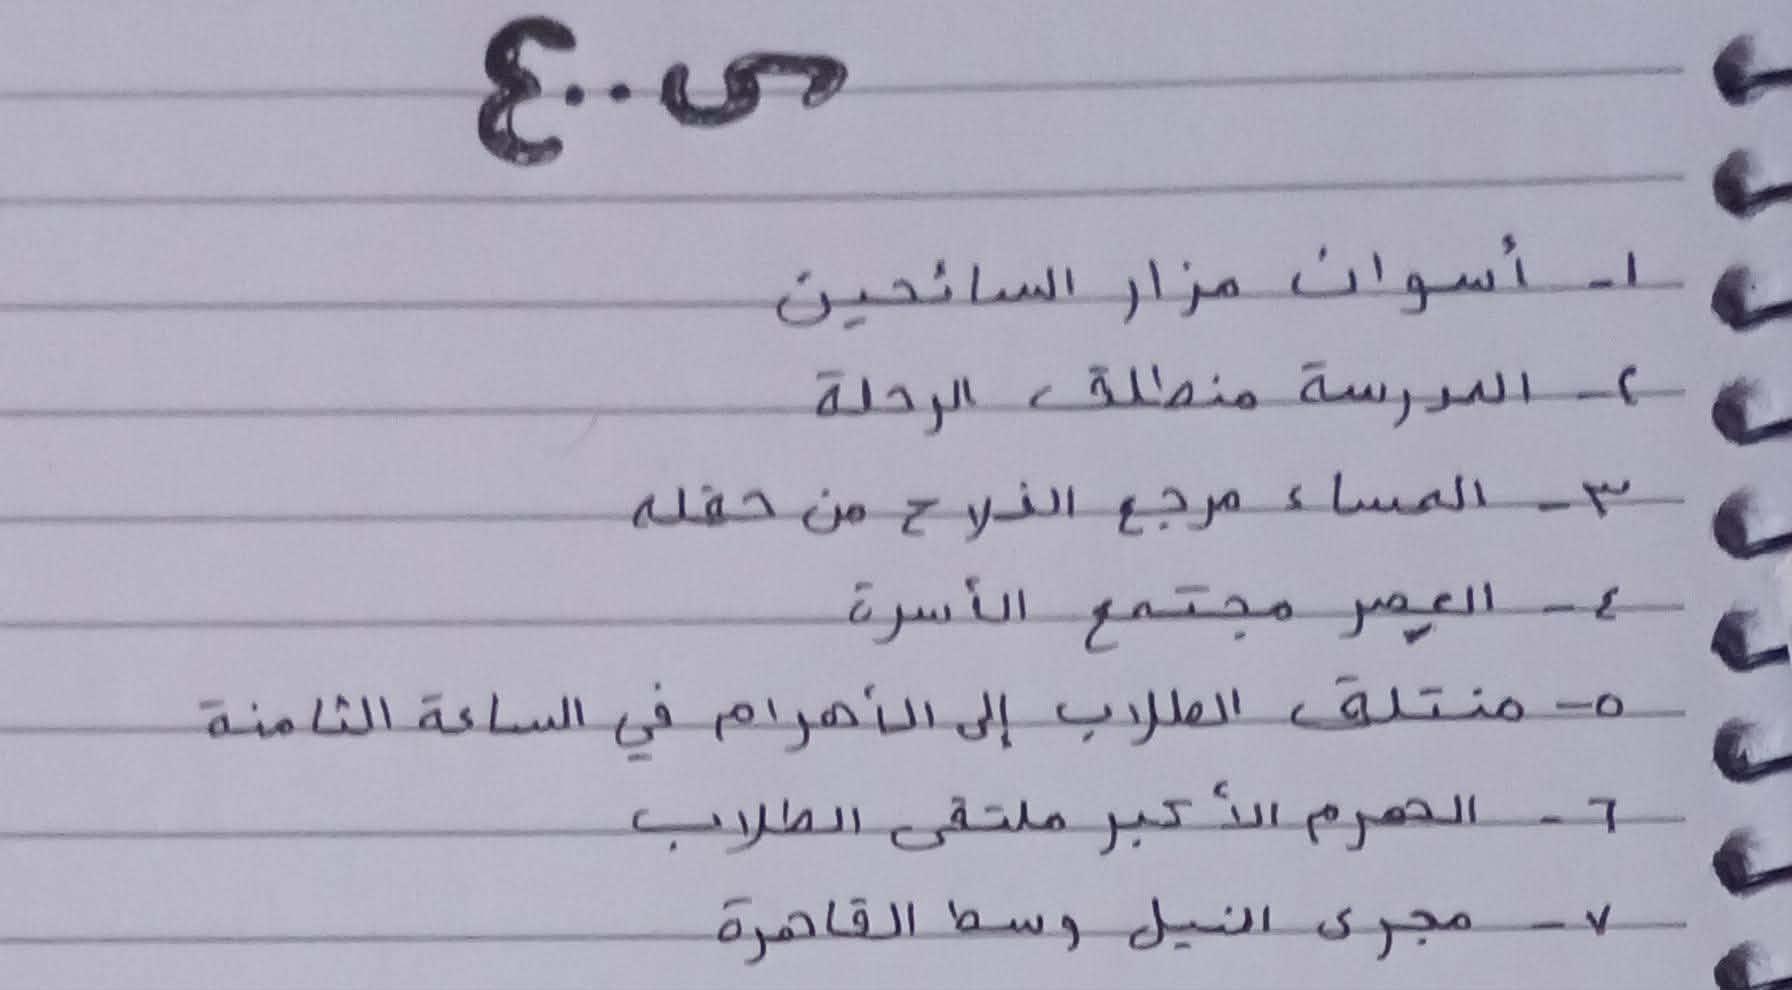 ص ٤٠٠
١- أسوان مزار السائحين
٢- المدرسة منطلق الرحلة
٣- المساء مرجع الفلاح من حقله
٤- العصر مجتمع الأسرة
٥- منتلق الطلاب إلى الأهرام في الساعة الثامنة
٦- الهرم الأكبر ملتقى الطلاب
٧- مجرى النيل وسط القاهرة